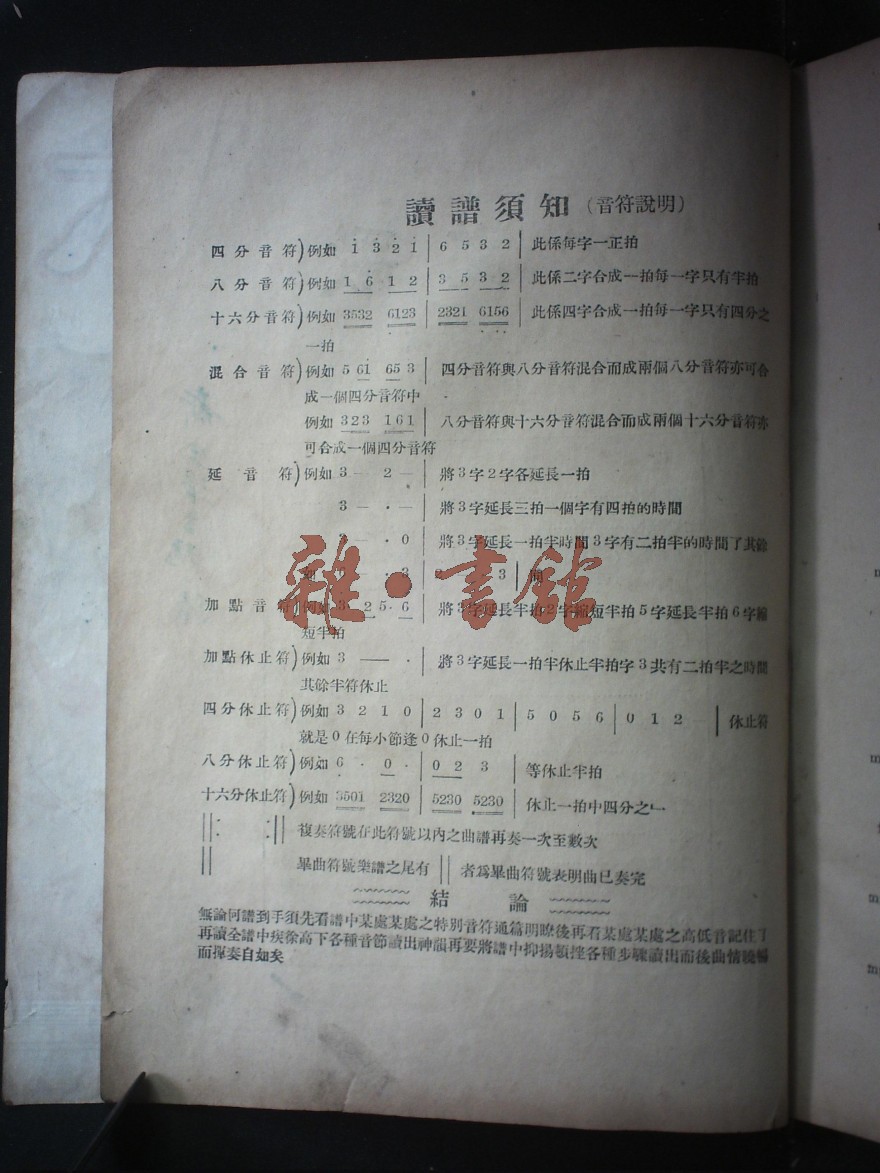 讀譜須知(音符說明)
四分音符)例如 1 3 2 1 | 6 5 3 2 | 此係每字一正拍
八分音符)例如 1 6 1 2 | 3 5 3 2 | 此係二字合成一拍每一字只有半拍
十六分音符)例如 3532 6123 | 2321 6156 | 此係四字合成一拍每一字只有四分之
一拍
混合音符)例如 5 61 65 3 | 四分音符與八分音符混合而成兩個八分音符亦可合
成一個四分音符中
例如 323 161 | 八分音符與十六分音符混合而成兩個十六分音符亦
可合成一個四分音符
延音符)例如 3 — 2 — | 將3字2字各延長一拍
3 — · — | 將3字延長三拍一個字有四拍的時間
— · 0 | 將3字延長一拍半時間3字有二拍半的時間了其餘
雜·書館
加點音符)例如 3 25·6 | 將3字延長半拍2字縮短半拍5字延長半拍6字縮
短半拍
加點休止符)例如 3 — · | 將3字延長一拍半休止半拍字3共有二拍半之時間
其餘半符休止
四分休止符)例如 3 2 1 0 | 2 3 0 1 | 5 0 5 6 | 0 1 2 — | 休止符
就是0在每小節逢0休止一拍
八分休止符)例如 6 · 0 · | 0 2 3 | 等休止半拍
十六分休止符)例如 3501 2320 | 5230 5230 | 休止一拍中四分之一
||: :|| 複奏符號在此符號以內之曲譜再奏一次至數次
|| 畢曲符號樂譜之尾有 || 者爲畢曲符號表明曲已奏完
結論
無論何譜到手須先看譜中某處某處之特別音符通篇明瞭後再看某處某處之高低音記住了
再讀全譜中疾徐高下各種音節讀出神韻再要將譜中抑揚頓挫各種步驟讀出而後曲情曉暢
而揮奏自如矣